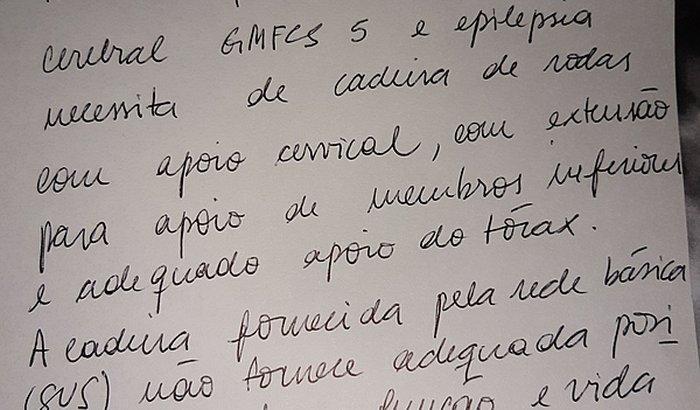 cerebral GMFCS 5 e epilepsia
necessita de cadeira de rodas
com apoio cervical, com extensão
para apoio de membros inferiores
e adequado apoio do tórax.
A cadeira fornecida pela rede básica
(SUS) não fornece adequada posi
função e vida